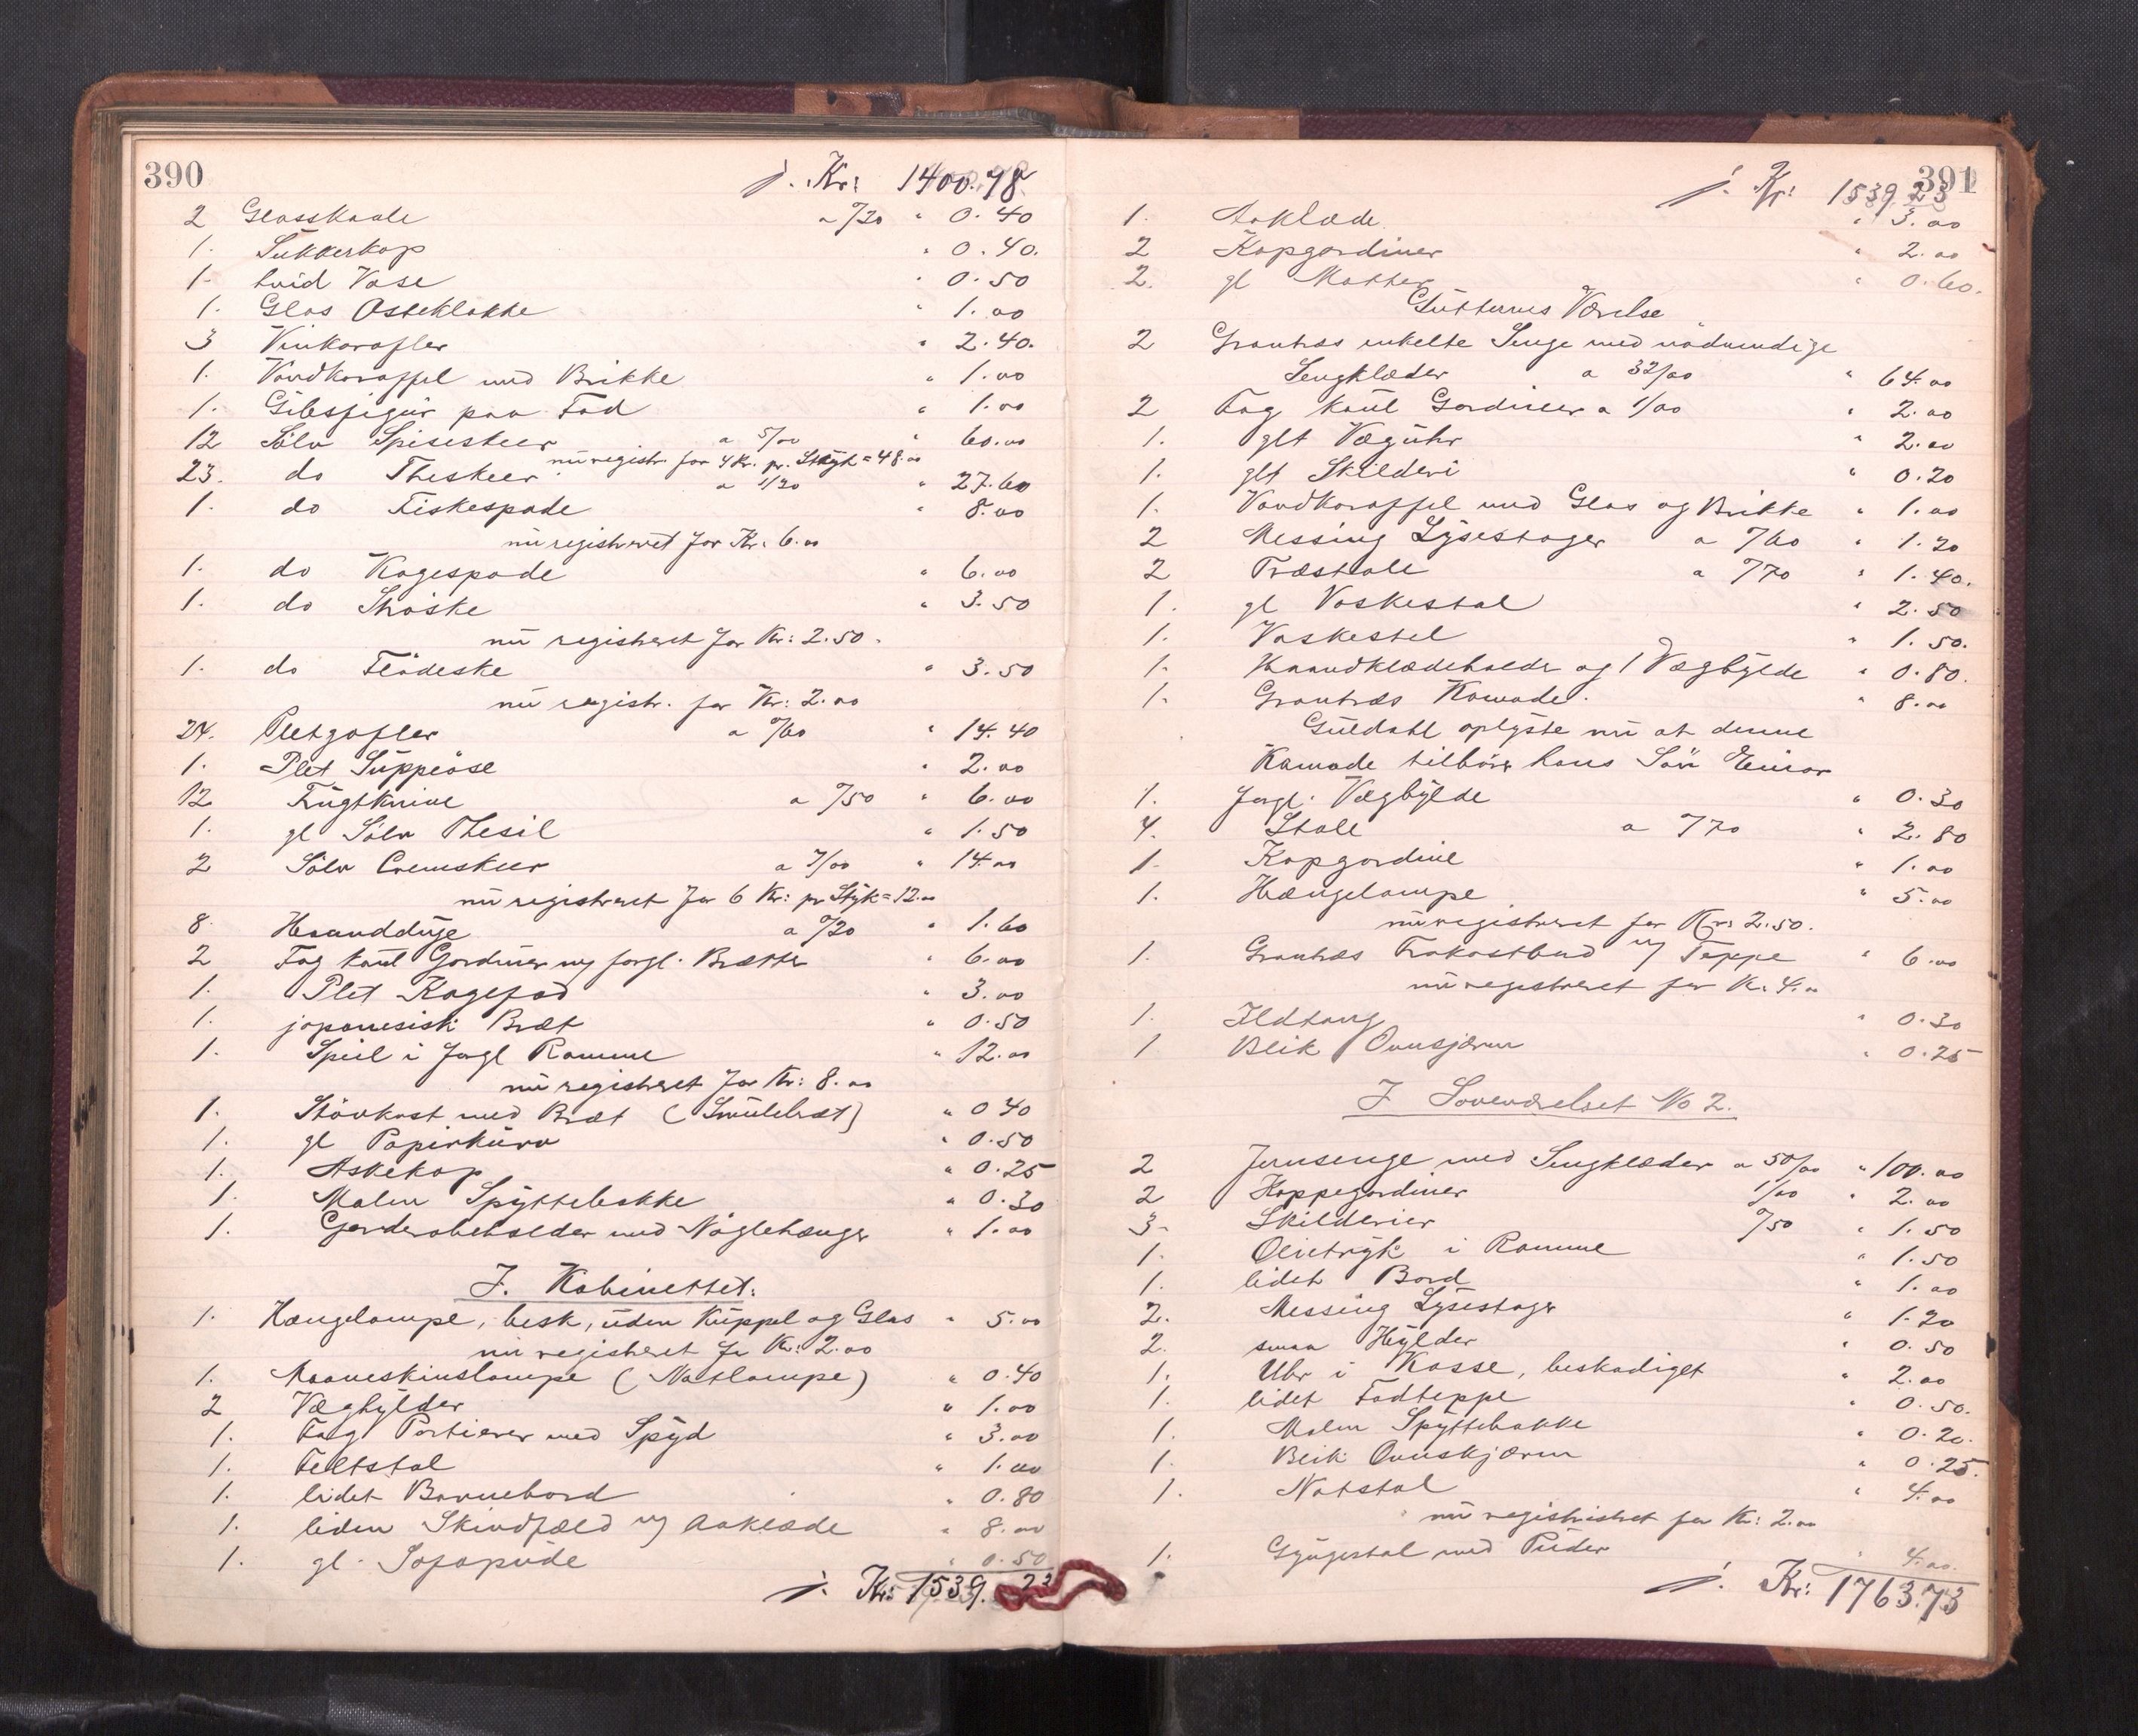 390
/. Kr: 1400.78
2 Glasskaale a 0/20 " 0.40
1. Sukkerkop " 0.40.
1. hvid Vase " 0.50
1. Glas Osteklokke " 1.00
3 Vinkarafler " 2.40.
1. Vandkaraffel med Brikke " 1.00
1. Gibsfigur paa Fad " 1.00
12 Sölv Spiseskeer a 5/00 " 60.00
nu registr. for 4 Kr. pr. Styk = 48.00
23. do Theskeer a 1/20 " 27.60
1. do Fiskespade " 8.00
nu registreret for Kr. 6.00
1. do Kagespade " 6.00
1. do Ströske " 3.50
nu registreret for Kr: 2.50.
1. do Flödeske " 3.50
nu registr. for Kr: 2.00
24. Pletgafler a 0/60 " 14.40
1. Plet Suppeöse " 2.00
12 Frugtknive a 0/50 " 6.00
1. gl Sölv Thesil " 1.50
2 Sölv Cremskeer a 7/00 " 14.00
nu registreret for 6 Kr: pr Styk = 12.00
8 Haandduge a 0/20 " 1.60
2 Fag hault Gardiner og forgl. Brætter " 6.00
1. Plet Kagefad " 3.00
1. japanesisk Bræt " 0.50
1. Speil i forgl Ramme " 12.00
nu registreret for Kr: 8.00
1. Stövkost med Bræt (Smulebræt) " 0 40
1. gl Papirkurv " 0.50
1. Askekop " 0.25
1. Malm Spyttebakke " 0.30
1. Garderobeholder med Nöglehænger " 1.00
I. Kabinettet.
1. Hængelampe, besk, uden Kuppel og Glas " 5.00
nu registreret for Kr: 2.00
1. Maaneskinslampe (Natlampe) " 0.40
2 Væghylder " 1.00
1. Fag Portierer med Spyd " 3.00
1. Feltstol " 1.00
1. lidet Barnebord " 0.80
1. liden Skindfæld og Aaklæde " 8.00
1. gl. Sofapude " 0.50
/. Kr: 1539.23
391
/. Kr: 1539.23
1. Aaklæde " 3.00
2 Kapgardiner " 2.00
2. gl Matter " 0.60.
Gutternes Værelse
2 Grantræs enkelte Senge med nödvendige
Sengklæder a 32/00 " 64.00
2 Fag hault Gardiner a 1/00 " 2.00
1. glt Væguhr " 2.00
1. glt Skilderi " 0.20
1. Vandkaraffel med Glas og Brikke " 1.00
2 Messing Lysestager a 0/60 " 1.20
2 Træstole a 0/70 " 1.40.
1. gl Vaskestol " 2.50
1. Vaskestel " 1.50.
1. Haandklædeholder og 1 Væghylde " 0.80.
1. Grantræs Komode. " 8.00
Guldahl oplyste nu at denne
Komode tilhörer hans Sön Einar
1. forgl. Væghylde " 0.30
4. Stole a 0/70 " 2.80
1. Kapgardine " 1.00
1. Hængelampe " 5.00
nu registreret for Kr: 2.50.
1. Grantræs Frokostbord og Teppe " 6.00
nu registreret for Kr. 4.00
1. Ildtang " 0.30
1 Blik Ovnsjærm " 0.25
I Soveværelset No 2.
2 Jernsenge med Sengklæder a 50/00 " 100.00
2 Kappegardiner 1/00 " 2.00
3. Skilderier 0/50 " 1.50
1. Olietryk i Ramme " 1.50
1. lidet Bord " 1.00
2. Messing Lysestager " 1.20
2. smaa Hylder " 0.50
1. Uhr i Kasse, beskadiget " 2.00
1. lidet Fodteppe " 0.50.
1. Malm Spyttebakke " 0.20.
1. Blik Ovnskjærm " 0.25.
1. Natstol " 4.00
nu registreret for Kr: 2.00
1. Gyngestol med Puder " 4.00.
/. Kr: 1763.73